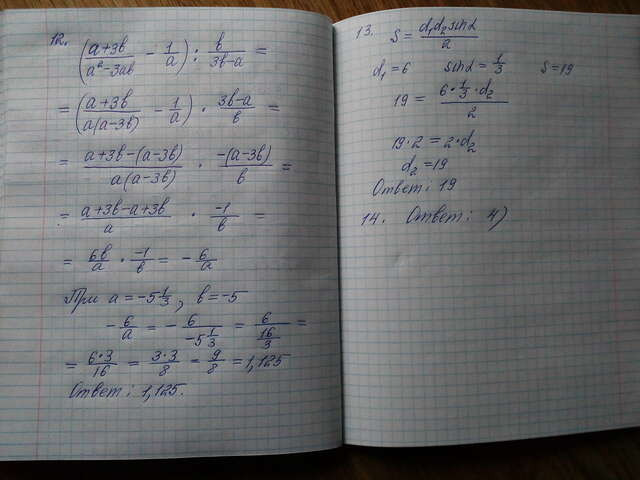 12. ((a+3b)/(a²-3ab) - 1/a) : b/(3b-a) =
= ((a+3b)/(a(a-3b)) - 1/a) · (3b-a)/b =
= (a+3b-(a-3b))/(a(a-3b)) · (-(a-3b))/b =
= (a+3b-a+3b)/a · (-1)/b =
= 6b/a · (-1)/b = - 6/a
При a = -5 1/3, b = -5
- 6/a = - 6/(-5 1/3) = 6/(16/3) =
= (6·3)/16 = (3·3)/8 = 9/8 = 1,125
Ответ: 1,125.
13. S = (d₁d₂sinα)/2
d₁ = 6 sinα = 1/3 S = 19
19 = (6 · 1/3 · d₂)/2
19·2 = 2·d₂
d₂ = 19
Ответ: 19
14. Ответ: 4)